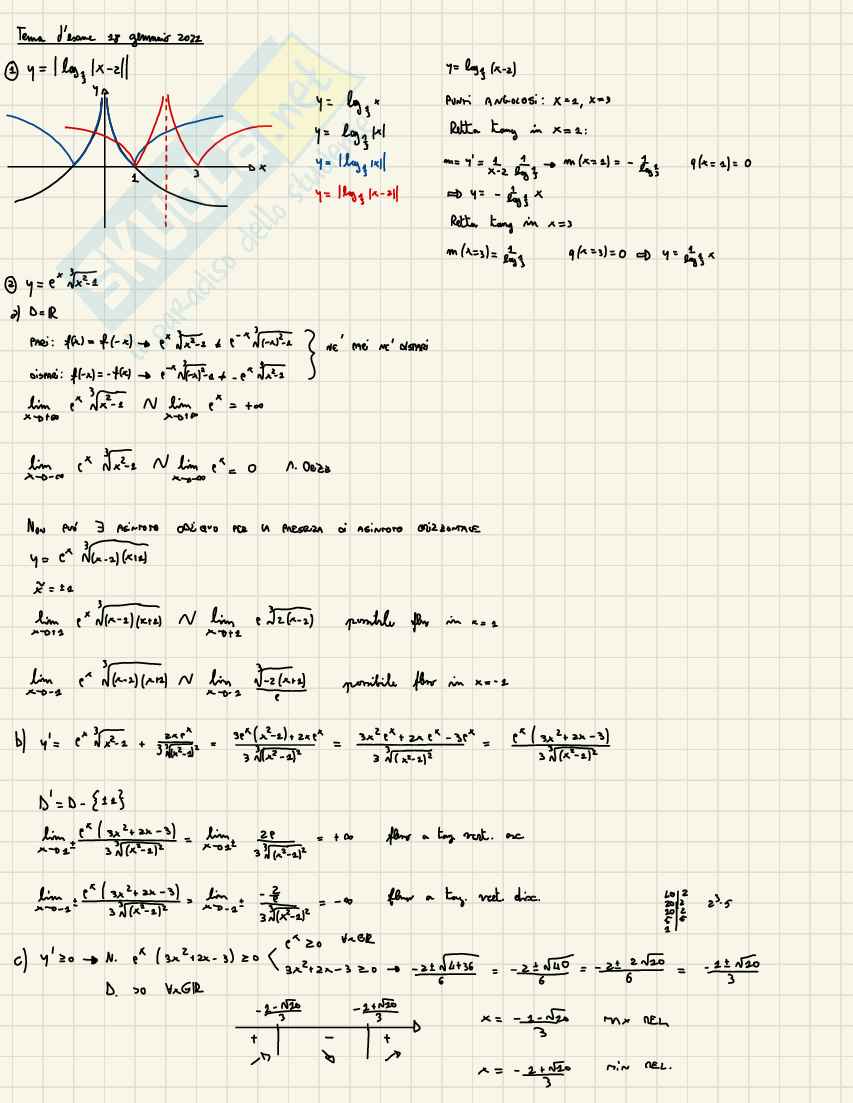 Tema d'esame 18 gennaio 2022
① y = |log_{1/3} |x-2||
y
1
3
x
y = log_{1/3} x
y = log_{1/3} |x|
y = |log_{1/3} |x||
y = |log_{1/3} |x-2||
y = log_{1/3} (x-2)
PUNTI ANGOLOSI: x=1, x=3
Retta tang in x=1:
m = y' = 1/(x-2) · 1/log 1/3 → m(x=1) = - 1/log 1/3   q(x=1) = 0
⇒ y = - 1/log 1/3 x
Retta tang in x=3
m(x=3) = 1/log 1/3   q(x=3) = 0 ⇒ y = 1/log 1/3 x
② y = e^x ∛(x²-1)
a) D = ℝ
PARI: f(x) = f(-x) → e^x ∛(x²-1) ≠ e^{-x} ∛((-x)²-1)
DISPARI: f(-x) = -f(x) → e^{-x} ∛((-x)²-1) ≠ -e^x ∛(x²-1)
} NE' PARI NE' DISPARI
lim x→+∞ e^x ∛(x²-1) ~ lim x→+∞ e^x = +∞
lim x→-∞ e^x ∛(x²-1) ~ lim x→-∞ e^x = 0   A. ORIZZ
NON PUÒ ∃ ASINTOTO OBLIQUO PER LA PRESENZA DI ASINTOTO ORIZZONTALE
y = e^x ∛((x-1)(x+1))
x̃ = ±1
lim x→1 e^x ∛((x-1)(x+1)) ~ lim x→1 e ∛(2(x-1))   possibile flesso in x=1
lim x→-1 e^x ∛((x-1)(x+1)) ~ lim x→-1 ∛(-2(x+1))/e   possibile flesso in x=-1
b) y' = e^x ∛(x²-1) + 2xe^x/(3∛((x²-1)²)) = (3e^x(x²-1)+2xe^x)/(3∛((x²-1)²)) = (3x²e^x+2xe^x-3e^x)/(3∛((x²-1)²)) = e^x(3x²+2x-3)/(3∛((x²-1)²))
D' = D - {±1}
lim x→1± e^x(3x²+2x-3)/(3∛((x²-1)²)) = lim x→1± 2e/(3∛((x²-1)²)) = +∞   flesso a tg. vert. asc
lim x→-1± e^x(3x²+2x-3)/(3∛((x²-1)²)) = lim x→-1± (-2/e)/(3∛((x²-1)²)) = -∞   flesso a tg. vert disc.
40 | 2
20 | 2
10 | 2
5 | 5
1
2³·5
c) y' ≥ 0 → N. e^x (3x²+2x-3) ≥ 0
e^x ≥ 0 ∀x∈ℝ
3x²+2x-3 ≥ 0 → (-2±√(4+36))/6 = (-2±√40)/6 = (-2±2√10)/6 = (-1±√10)/3
D. > 0 ∀x∈ℝ
(-1-√10)/3   (-1+√10)/3
+ - +
x = (-1-√10)/3   max REL
x = (-1+√10)/3   min REL.
SKUOLA.net
il paradiso dello studente